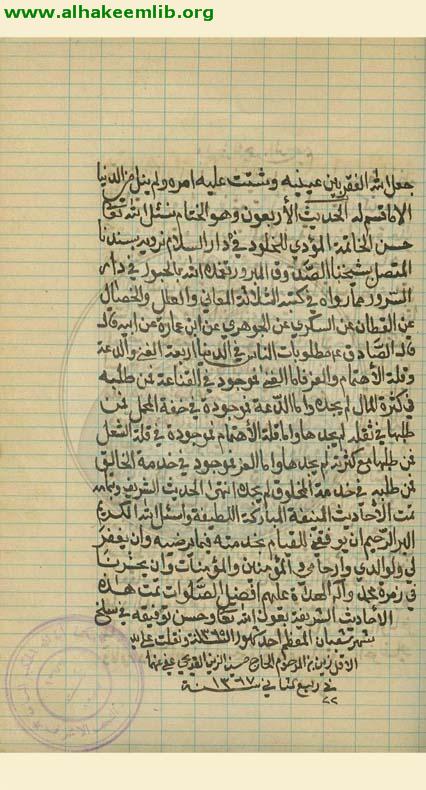 www.alhakeemlib.org
جعل الله الفقر بين عينيه وشتت عليه امره ولم ينل من الدنيا
الا ما قسم له الحديث الأربعون وهو الختام نسئل الله تعا
حسن الخاتمة المؤدي للخلود في دار السلام نرويه بسندنا
المتصل بشيخنا الصدوق المبرور تغمده الله بالحبور في دار
السرور مما رواه في كتبه الثلاثة المعاني والعلل والخصال
عن القطان عن السكري عن الجوهري عن ابن عمارة عن ابيه قال
قال الصادق ع مطلوبات الناس في الدنيا اربعة الغنى والدعة
وقلة الأهتمام والعز فاما الغنى فموجود في القناعة فمن طلبه
في كثرة المال لم يجده واما الدعة فموجودة في خفة المحمل فمن
طلبها في ثقله لم يجدها واما قلة الأهتمام فموجودة في قلة الشغل
فمن طلبها مع كثرته لم يجدها واما العز فموجود في خدمة الخالق
فمن طلبه في خدمة المخلوق لم يجده انتهى الحديث الشريف وبتمامه
تمت الأحاديث المنيفة المباركة اللطيفة واسئل الله الكريم
البر الرحيم ان يوفقني للقيام بخدمته فيما يرضيه وان يغفر
لي ولوالدي وارحامي والمؤمنين والمؤمنات وان يحشرنا
في زمرة محمد وآله الهداة عليهم افضل الصلوات تمت هذه
الأحاديث الشريفة بعون الله تعا وحسن توفيقه في سلخ
شهر شعبان المعظم احد شهور
الاقل المرحوم الحاج حسين
في ربيع ثاني سنة ١٣٦٧
٢٢